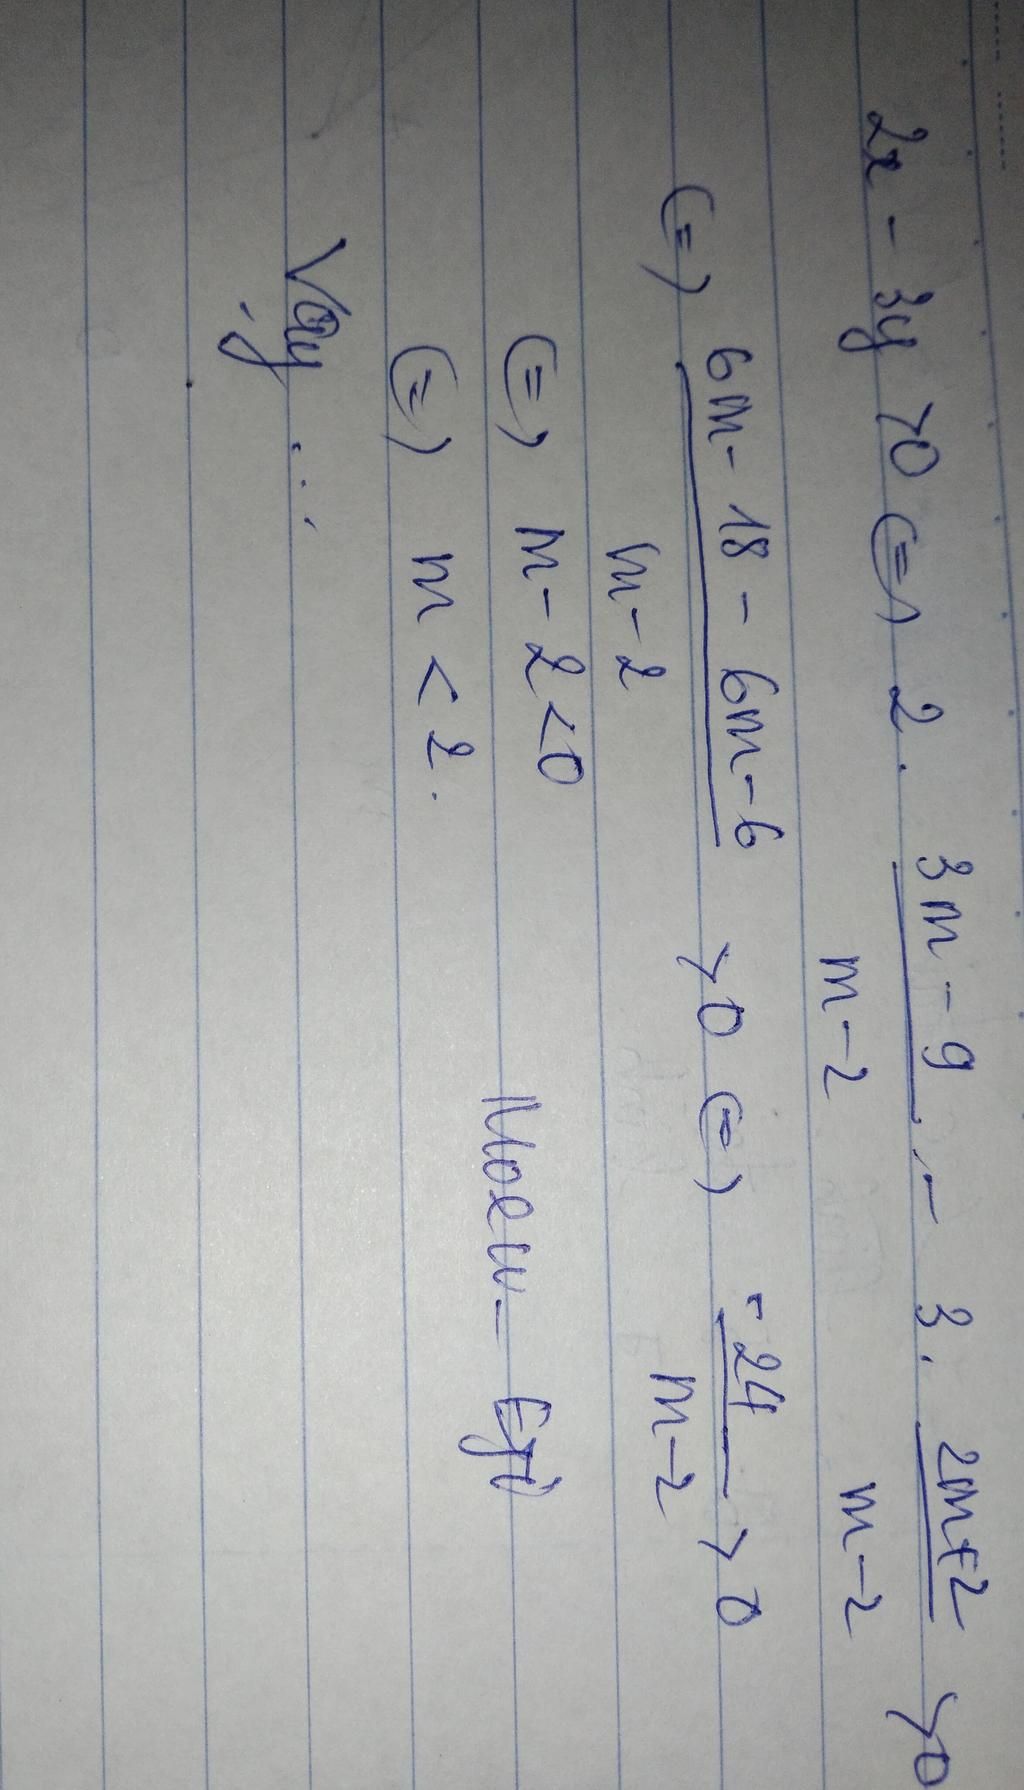 2x - 3y > 0 (=) 2. \frac{3m - 9}{m - 2} - 3. \frac{2m + 2}{m - 2} > 0
(=) \frac{6m - 18 - 6m - 6}{m - 2} > 0 (=) \frac{-24}{m - 2} > 0
(=) m - 2 < 0
(=) m < 2.
Vậy ...